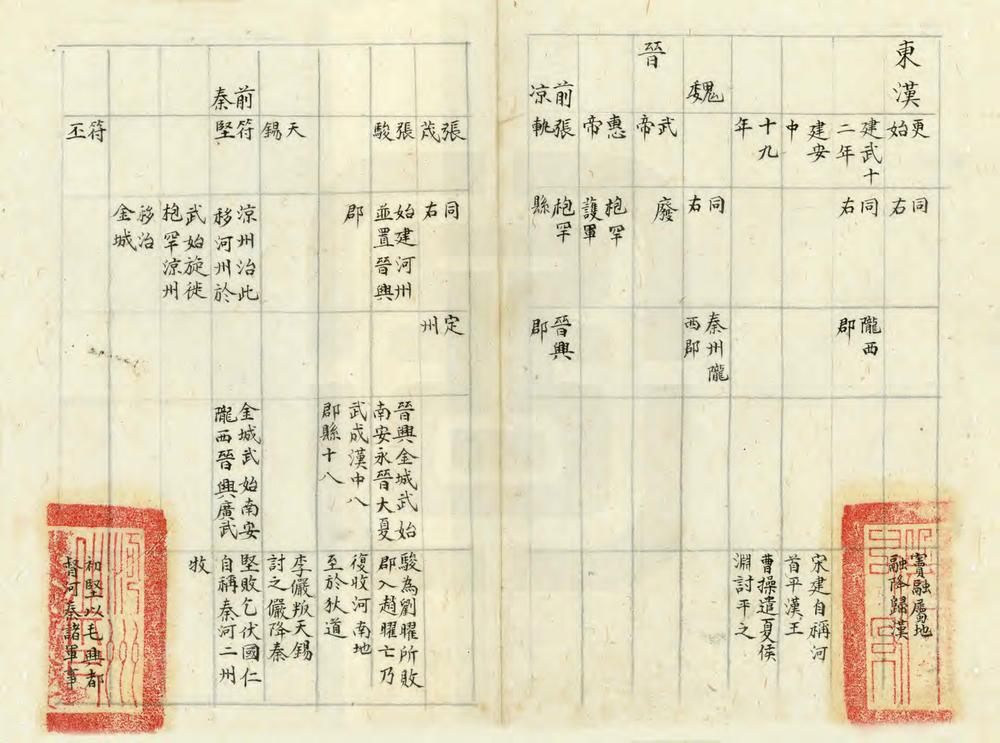 東漢
更
始
同
右
竇融屬地
融降歸漢
建武十
二年
同
右
隴西
郡
建安
中
宋建自稱河
首平漢王
十九
年
曹操遣夏侯
淵討平之
魏
同
右
秦州隴
西郡
晉
武
帝
廢
惠
帝
枹罕
護軍
前
凉
張
軌
枹罕
縣
晉興
郡
張
茂
同
右
定
州
張
駿
始建河州
並置晉興
郡
晉興金城武始
南安永晉大夏
武成漢中八
郡縣十八
駿為劉曜所敗
郡入趙曜亡乃
復收河南地
至於狄道
天
錫
李儼叛天錫
討之儼降秦
前
秦
符
堅
涼州治此
移河州於
武始旋徙
枹罕涼州
移治
金城
金城武始南安
隴西晉興廣武
堅敗乞伏國仁
自稱秦河二州
牧
符
丕
初堅以毛興都
督河秦諸軍事